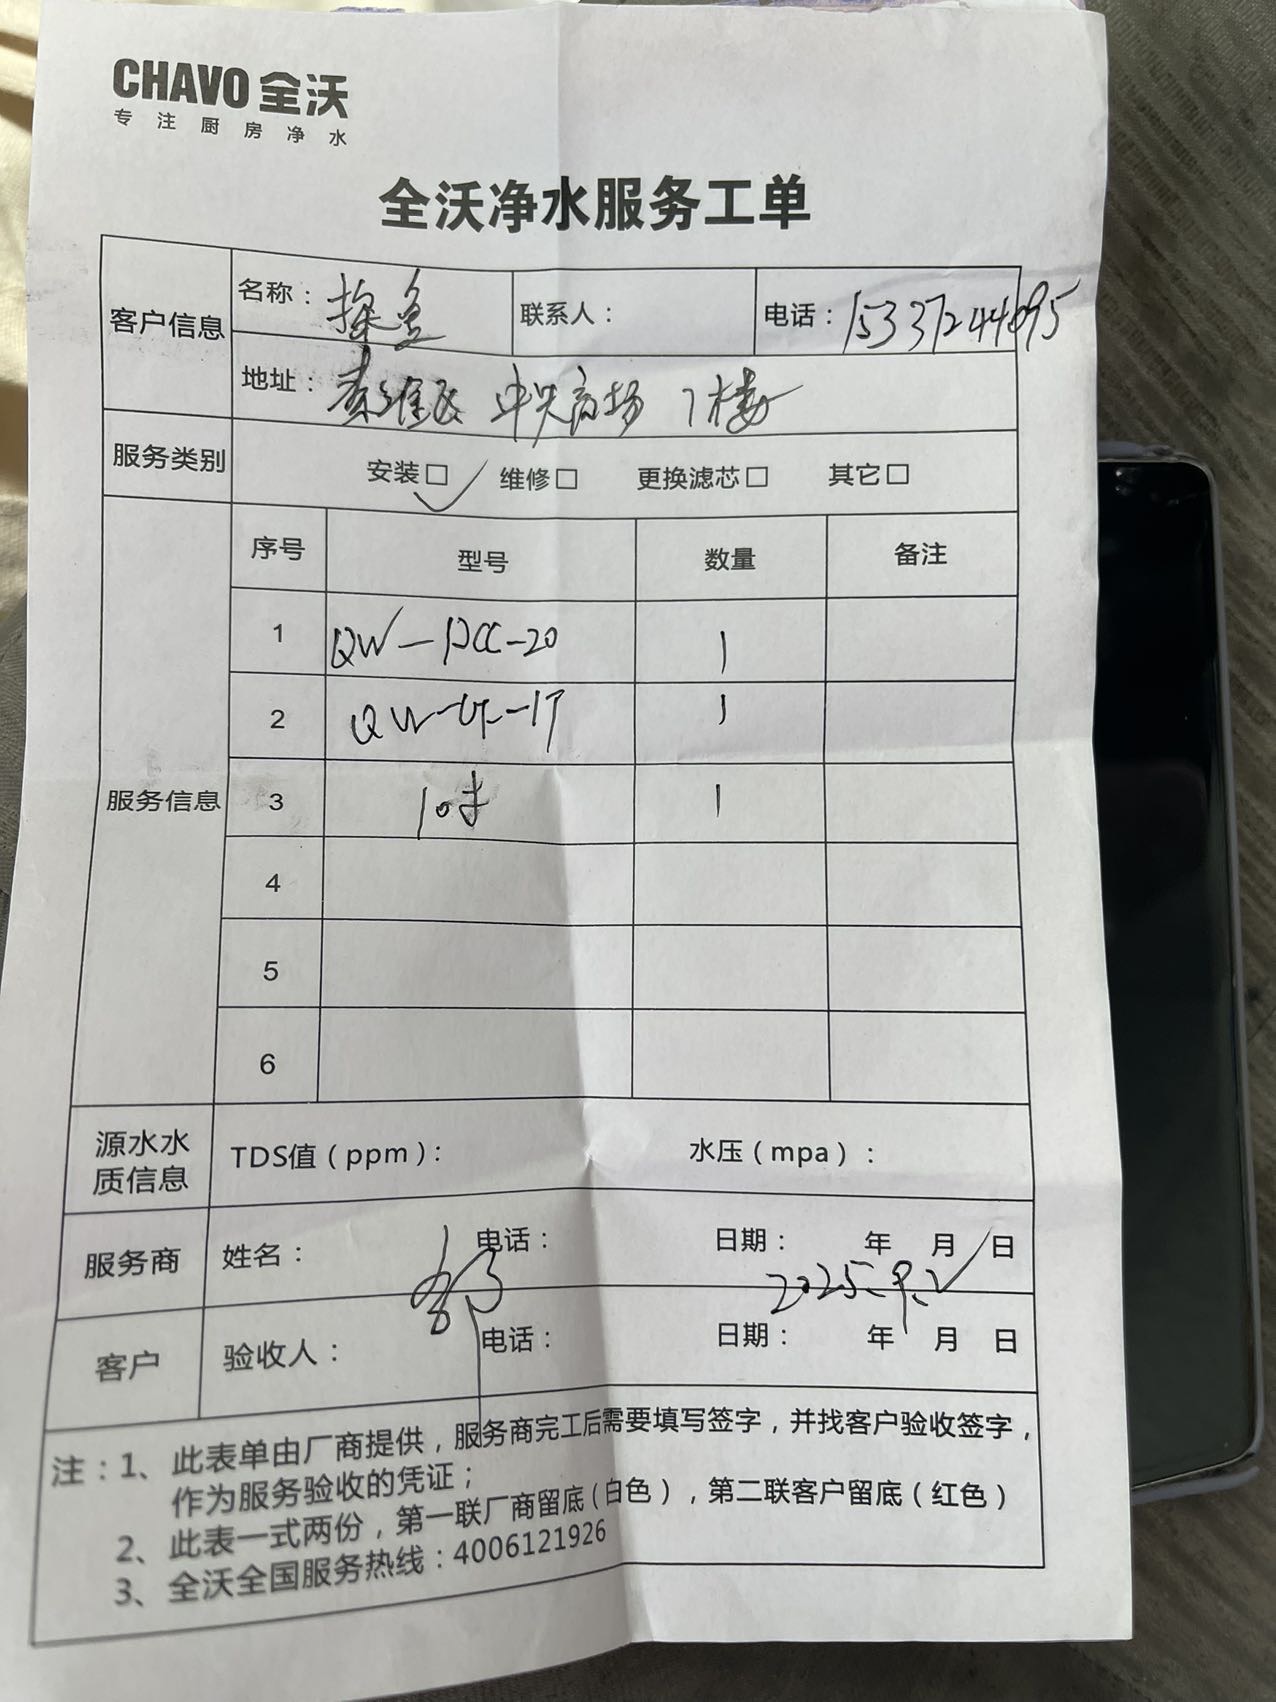 CHAVO 全沃
专注厨房净水
全沃净水服务工单
客户信息
名称： 探鱼
联系人：
电话：15337244895
地址： 中央商场 7楼
服务类别
安装□ 维修□ 更换滤芯□ 其它□
服务信息
序号 型号 数量 备注
1 QW-PCC-20 1
2 QW-UF-1T 1
3 10寸 1
4
5
6
源水水质信息
TDS值（ppm）： 水压（mpa）：
服务商 姓名： 电话： 日期： 年 月 日
2025.9.2
客户 验收人： 电话： 日期： 年 月 日
注：1、此表单由厂商提供，服务商完工后需要填写签字，并找客户验收签字，
作为服务验收的凭证；
2、此表一式两份，第一联厂商留底（白色），第二联客户留底（红色）
3、全沃全国服务热线：4006121926